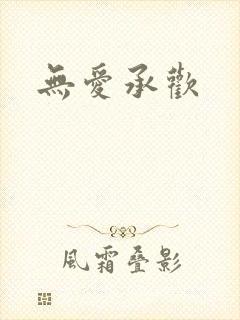 無愛承歡
風霜叠影